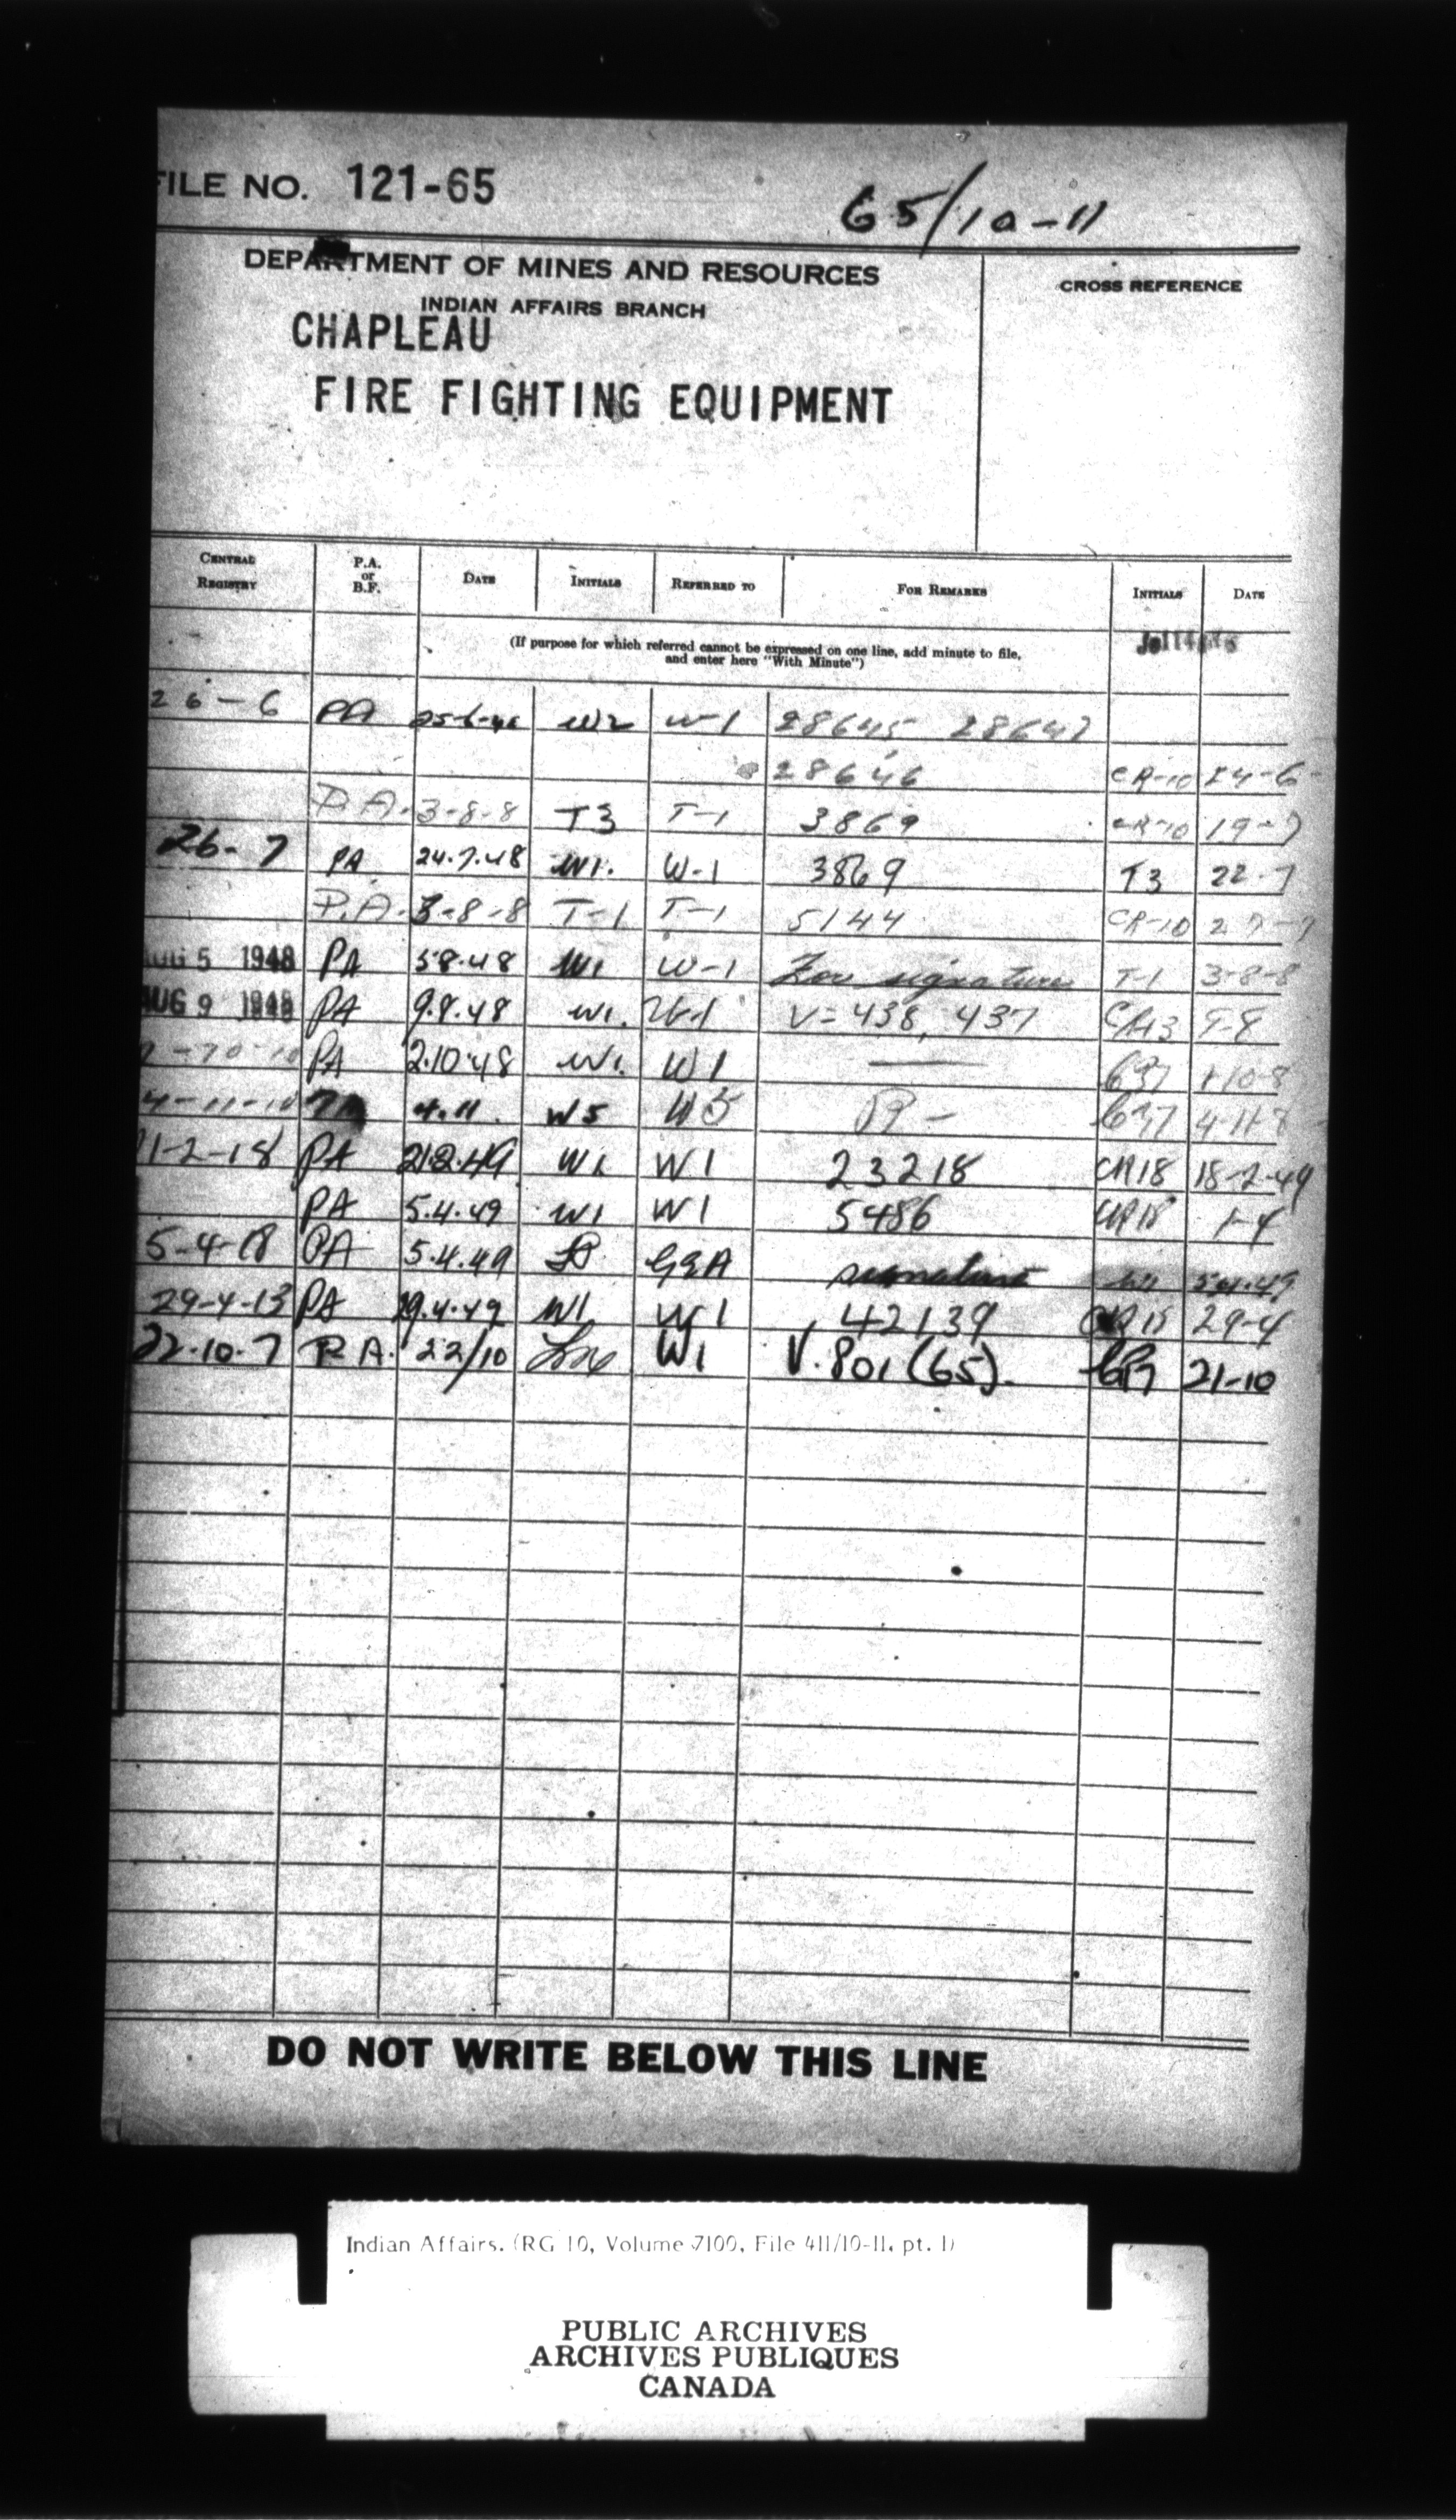 FILE NO. 121-65 65/10-11
DEPARTMENT OF MINES AND RESOURCES
INDIAN AFFAIRS BRANCH
CROSS REFERENCE
CHAPLEAU
FIRE FIGHTING EQUIPMENT
CENTRAL REGISTRY P.A. or B.F. DATE INITIALS REFERRED TO FOR REMARKS INITIALS DATE
(If purpose for which referred cannot be expressed on one line, add minute to file,
and enter here "With Minute")
26-6 PA W2 W-1 28645 28647
28646 CR-10 24-6
P.A. 3-8-8 T3 T-1 3869 CR-10 19-7
26-7 PA 24.7.48 W1. W-1 3869 T3 22-7
P.A. 3-8-8 T-1 T-1 5144 CR-10
AUG 5 1948 PA 5.8.48 W1 W-1 For signature T-1 3-8-8
AUG 9 1948 PA 9.8.48 W1. V=438, 437 9-8
PA 2.10.48 W1. W1 1-10-8
4.11. W5 W5 4-11-8
PA 21.2.49 W1 W1 23218 CR18 18-2-49
PA 5.4.49 W1 W1 5486 CR18 1-4
5-4-18 PA 5.4.49 G&A signature 5.4.49
29-4-13 PA 29.4.49 W1 W1 42139 CR18 29-4
22.10.7 P.A. 22/10 W1 V.801 (65). 21-10
DO NOT WRITE BELOW THIS LINE
Indian Affairs. (RG 10, Volume 7100, File 411/10-11, pt. 1)
PUBLIC ARCHIVES
ARCHIVES PUBLIQUES
CANADA